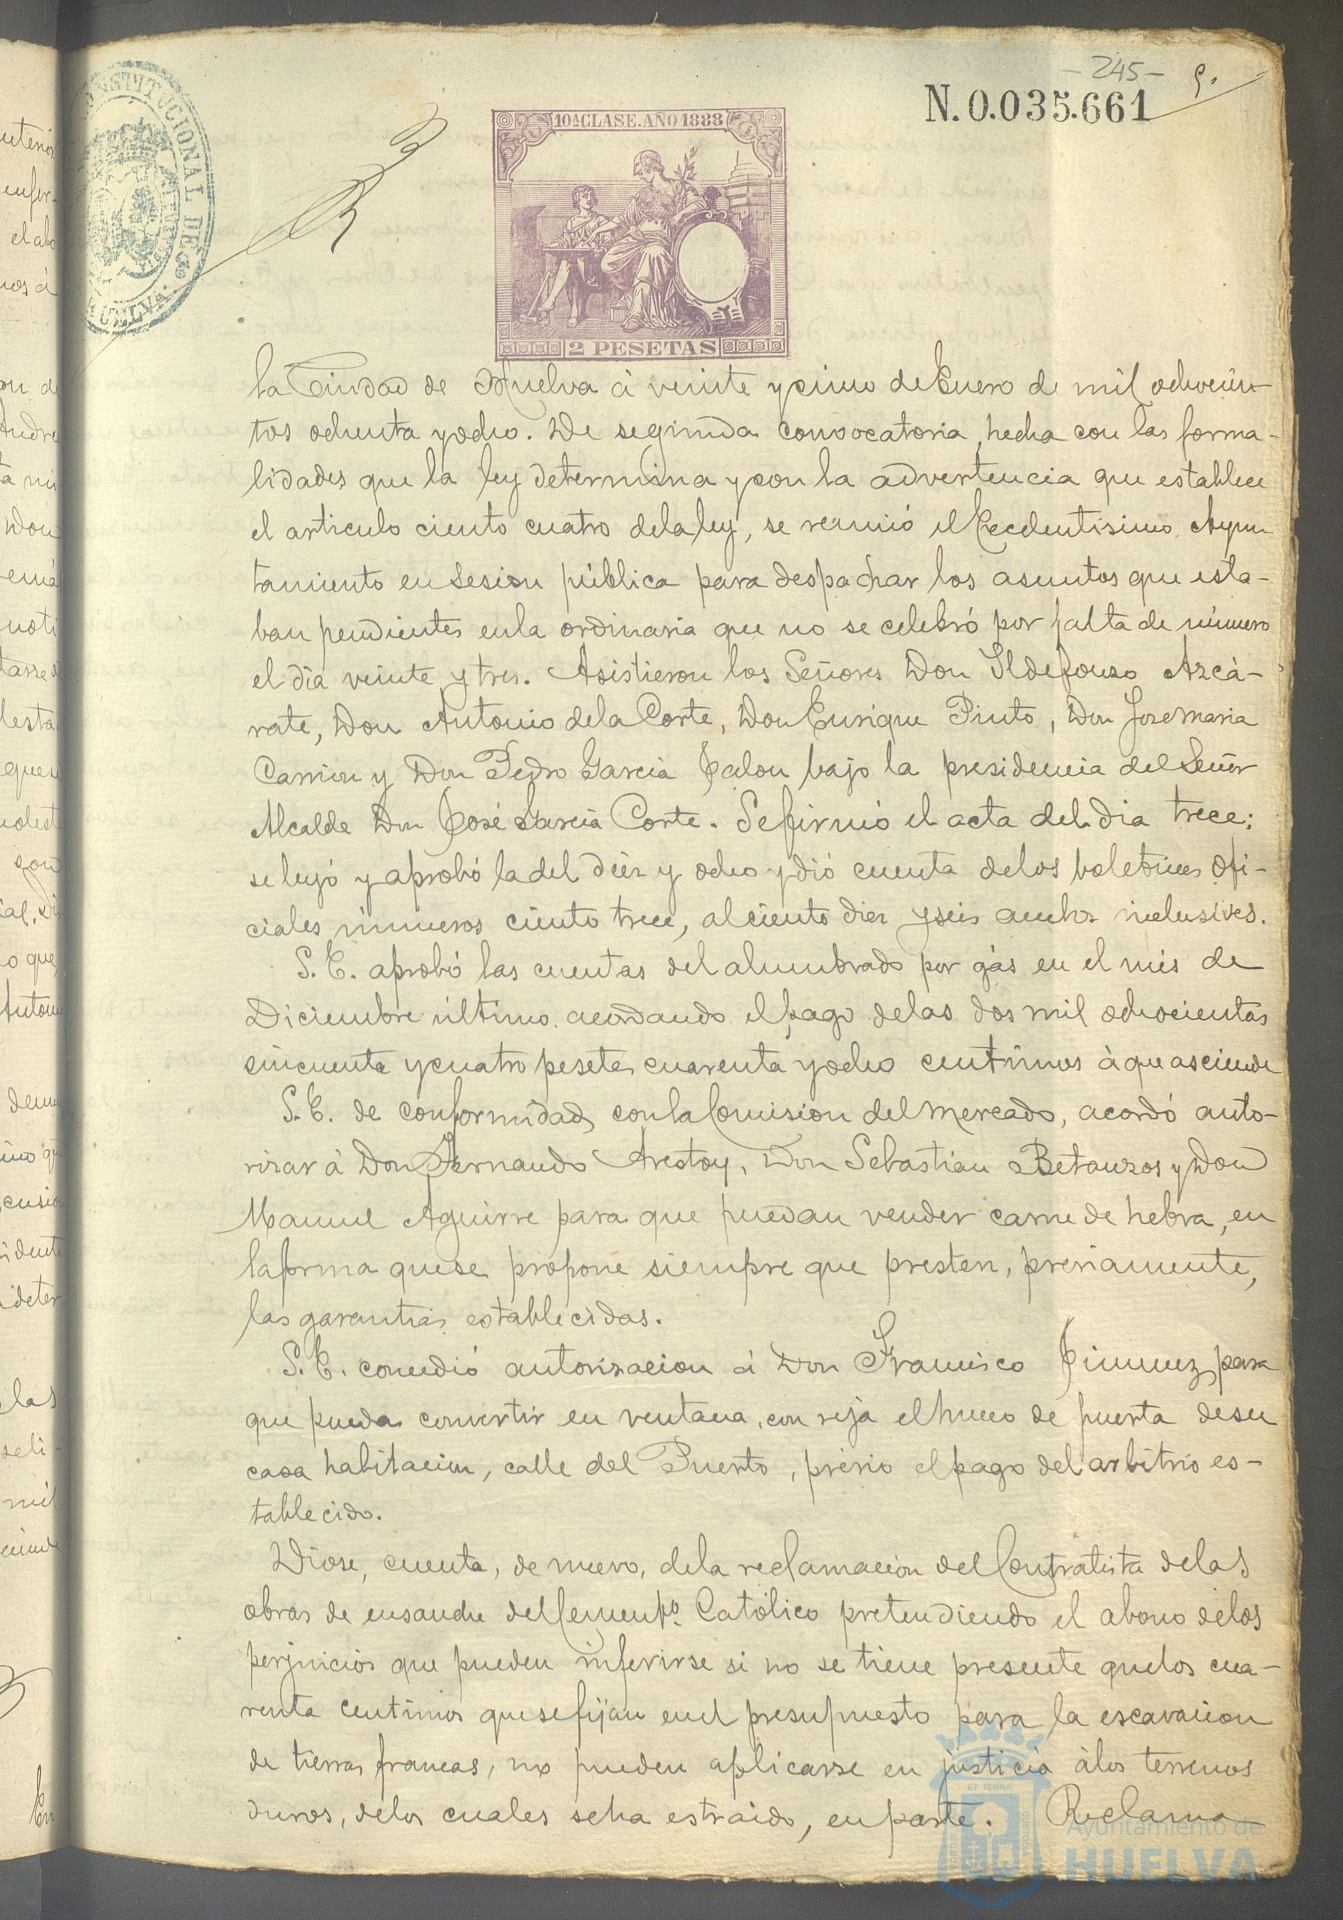 -245- 9.
N.0.035.661
CONSTITUCIONAL DE
HUELVA.
10ª CLASE. AÑO 1888
2 PESETAS
la Ciudad de Huelva á veinte y cinco de Enero de mil ochocien-
tos ochenta y ocho. De segunda convocatoria, hecha con las forma-
lidades que la ley determina y con la advertencia que establece
el articulo ciento cuatro de la ley, se reunió el Excelentisimo Ayun
tamiento en Sesion pública para despachar los asuntos que esta-
ban pendientes en la ordinaria que no se celebró por falta de número
el dia veinte y tres. Asistieron los Señores Don Ildefonso Azcá-
rate, Don Antonio de la Corte, Don Enrique Pinto, Don Jose Maria
Carrion y Don Pedro Garcia Jalon bajo la presidencia del Señor
Alcalde Don José Garcia Corte. Se firmó el acta del dia trece;
se leyó y aprobó la del diez y ocho y dió cuenta de los boletines ofi-
ciales números ciento trece, al ciento diez y seis ambos inclusives.
S. E. aprobó las cuentas del alumbrado por gas en el mes de
Diciembre último. acordando el pago de las dos mil ochocientas
cincuenta y cuatro pesetas cuarenta y ocho centimos à que asciende
S. E. de conformidad con la Comision del Mercado, acordó auto-
rizar á Don Fernando Arestoy, Don Sebastian Betanzos y Don
Manuel Aguirre para que puedan vender carne de hebra, en
la forma que se propone siempre que presten, previamente,
las garantias establecidas.
S. E. concedió autorizacion á Don Francisco Jimenez para
que pueda convertir en ventana, con reja el hueco de puerta de su
casa habitacion, calle del Puerto, prévio el pago del arbitrio es-
tablecido.
Diose, cuenta, de nuevo, de la reclamacion del Contratista de las
obras de ensanche del Cementº. Católico pretendiendo el abono de los
perjuicios que pueden inferirse si no se tiene presente que los cua-
renta centimos que se fijan en el presupuesto para la escavacion
de tierras francas, no pueden aplicarse en justicia à los terrenos
duros, de los cuales se ha estraido, en parte. Reclama
Ayuntamiento de
HUELVA